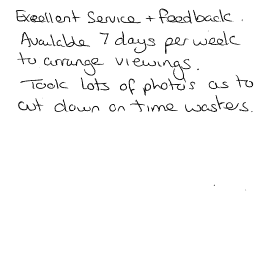 Excellent Service + feedback.
Available 7 days per week
to arrange viewings.
Took lots of photo's as to
cut down on time wasters.